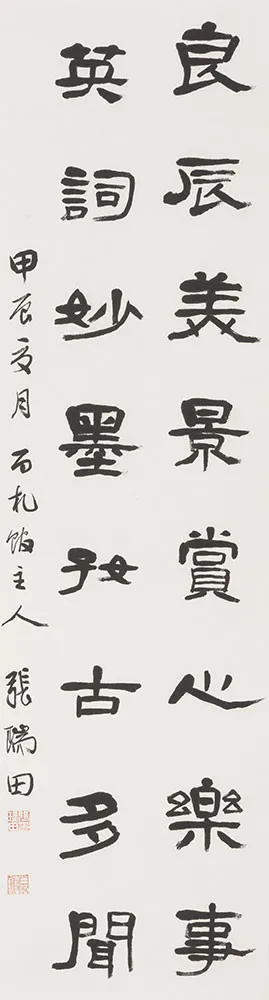 良辰美景賞心樂事
英詞妙墨好古多聞
甲辰夏月 百札館主人 張瑞田